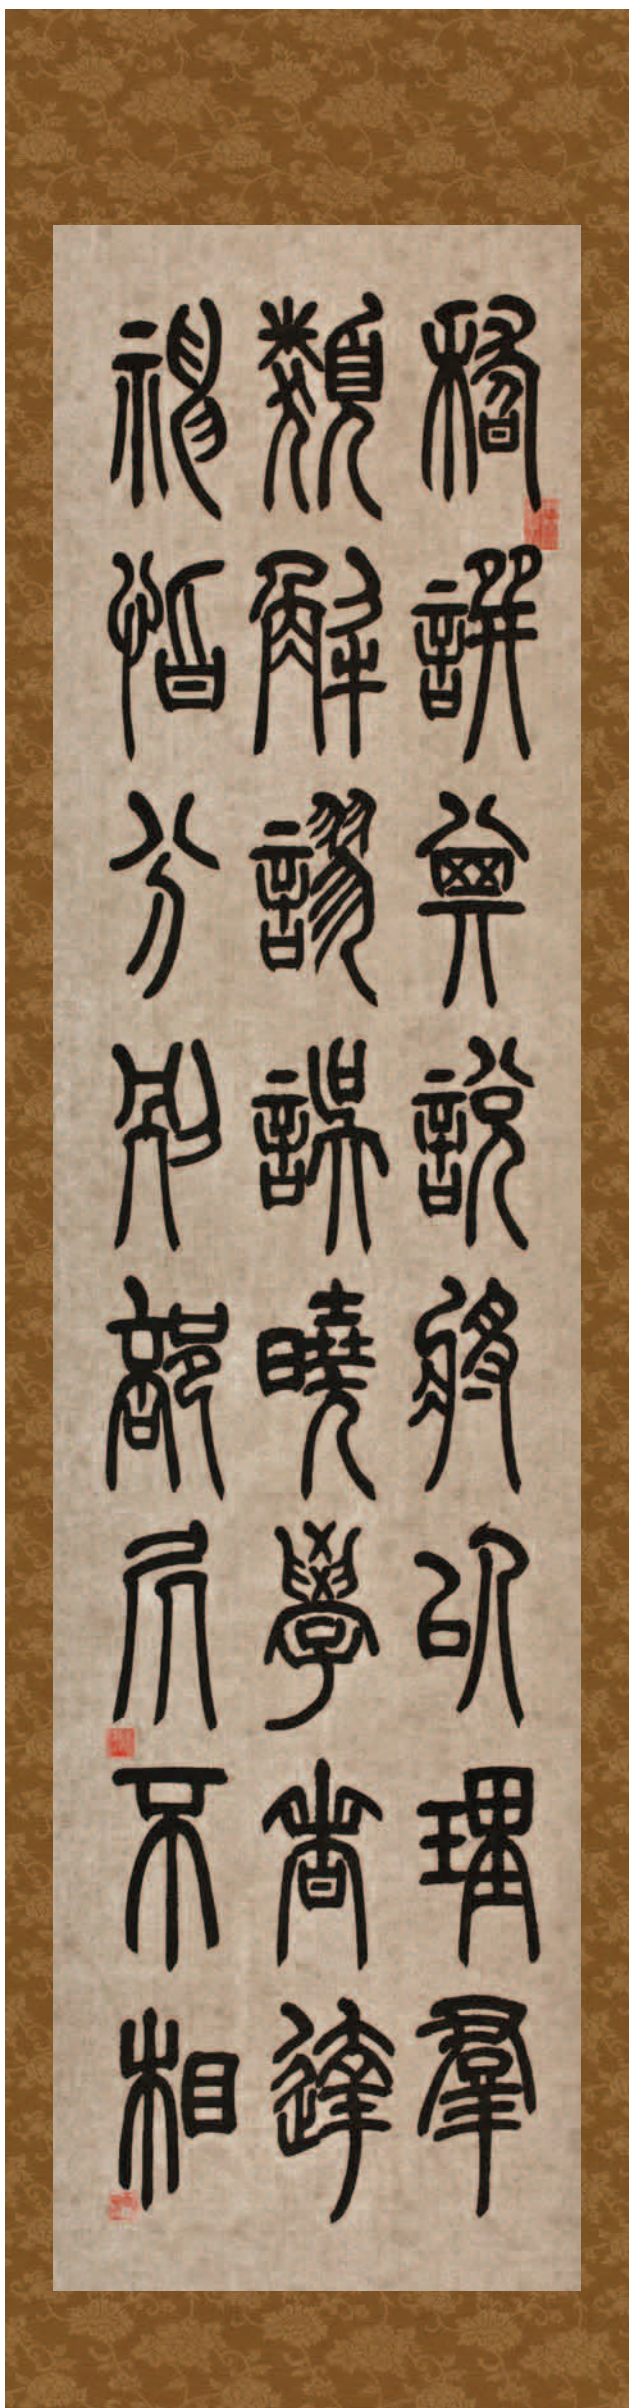 稽譔其說將以理羣
類解謬誤曉學者達
神恉分別部居不相